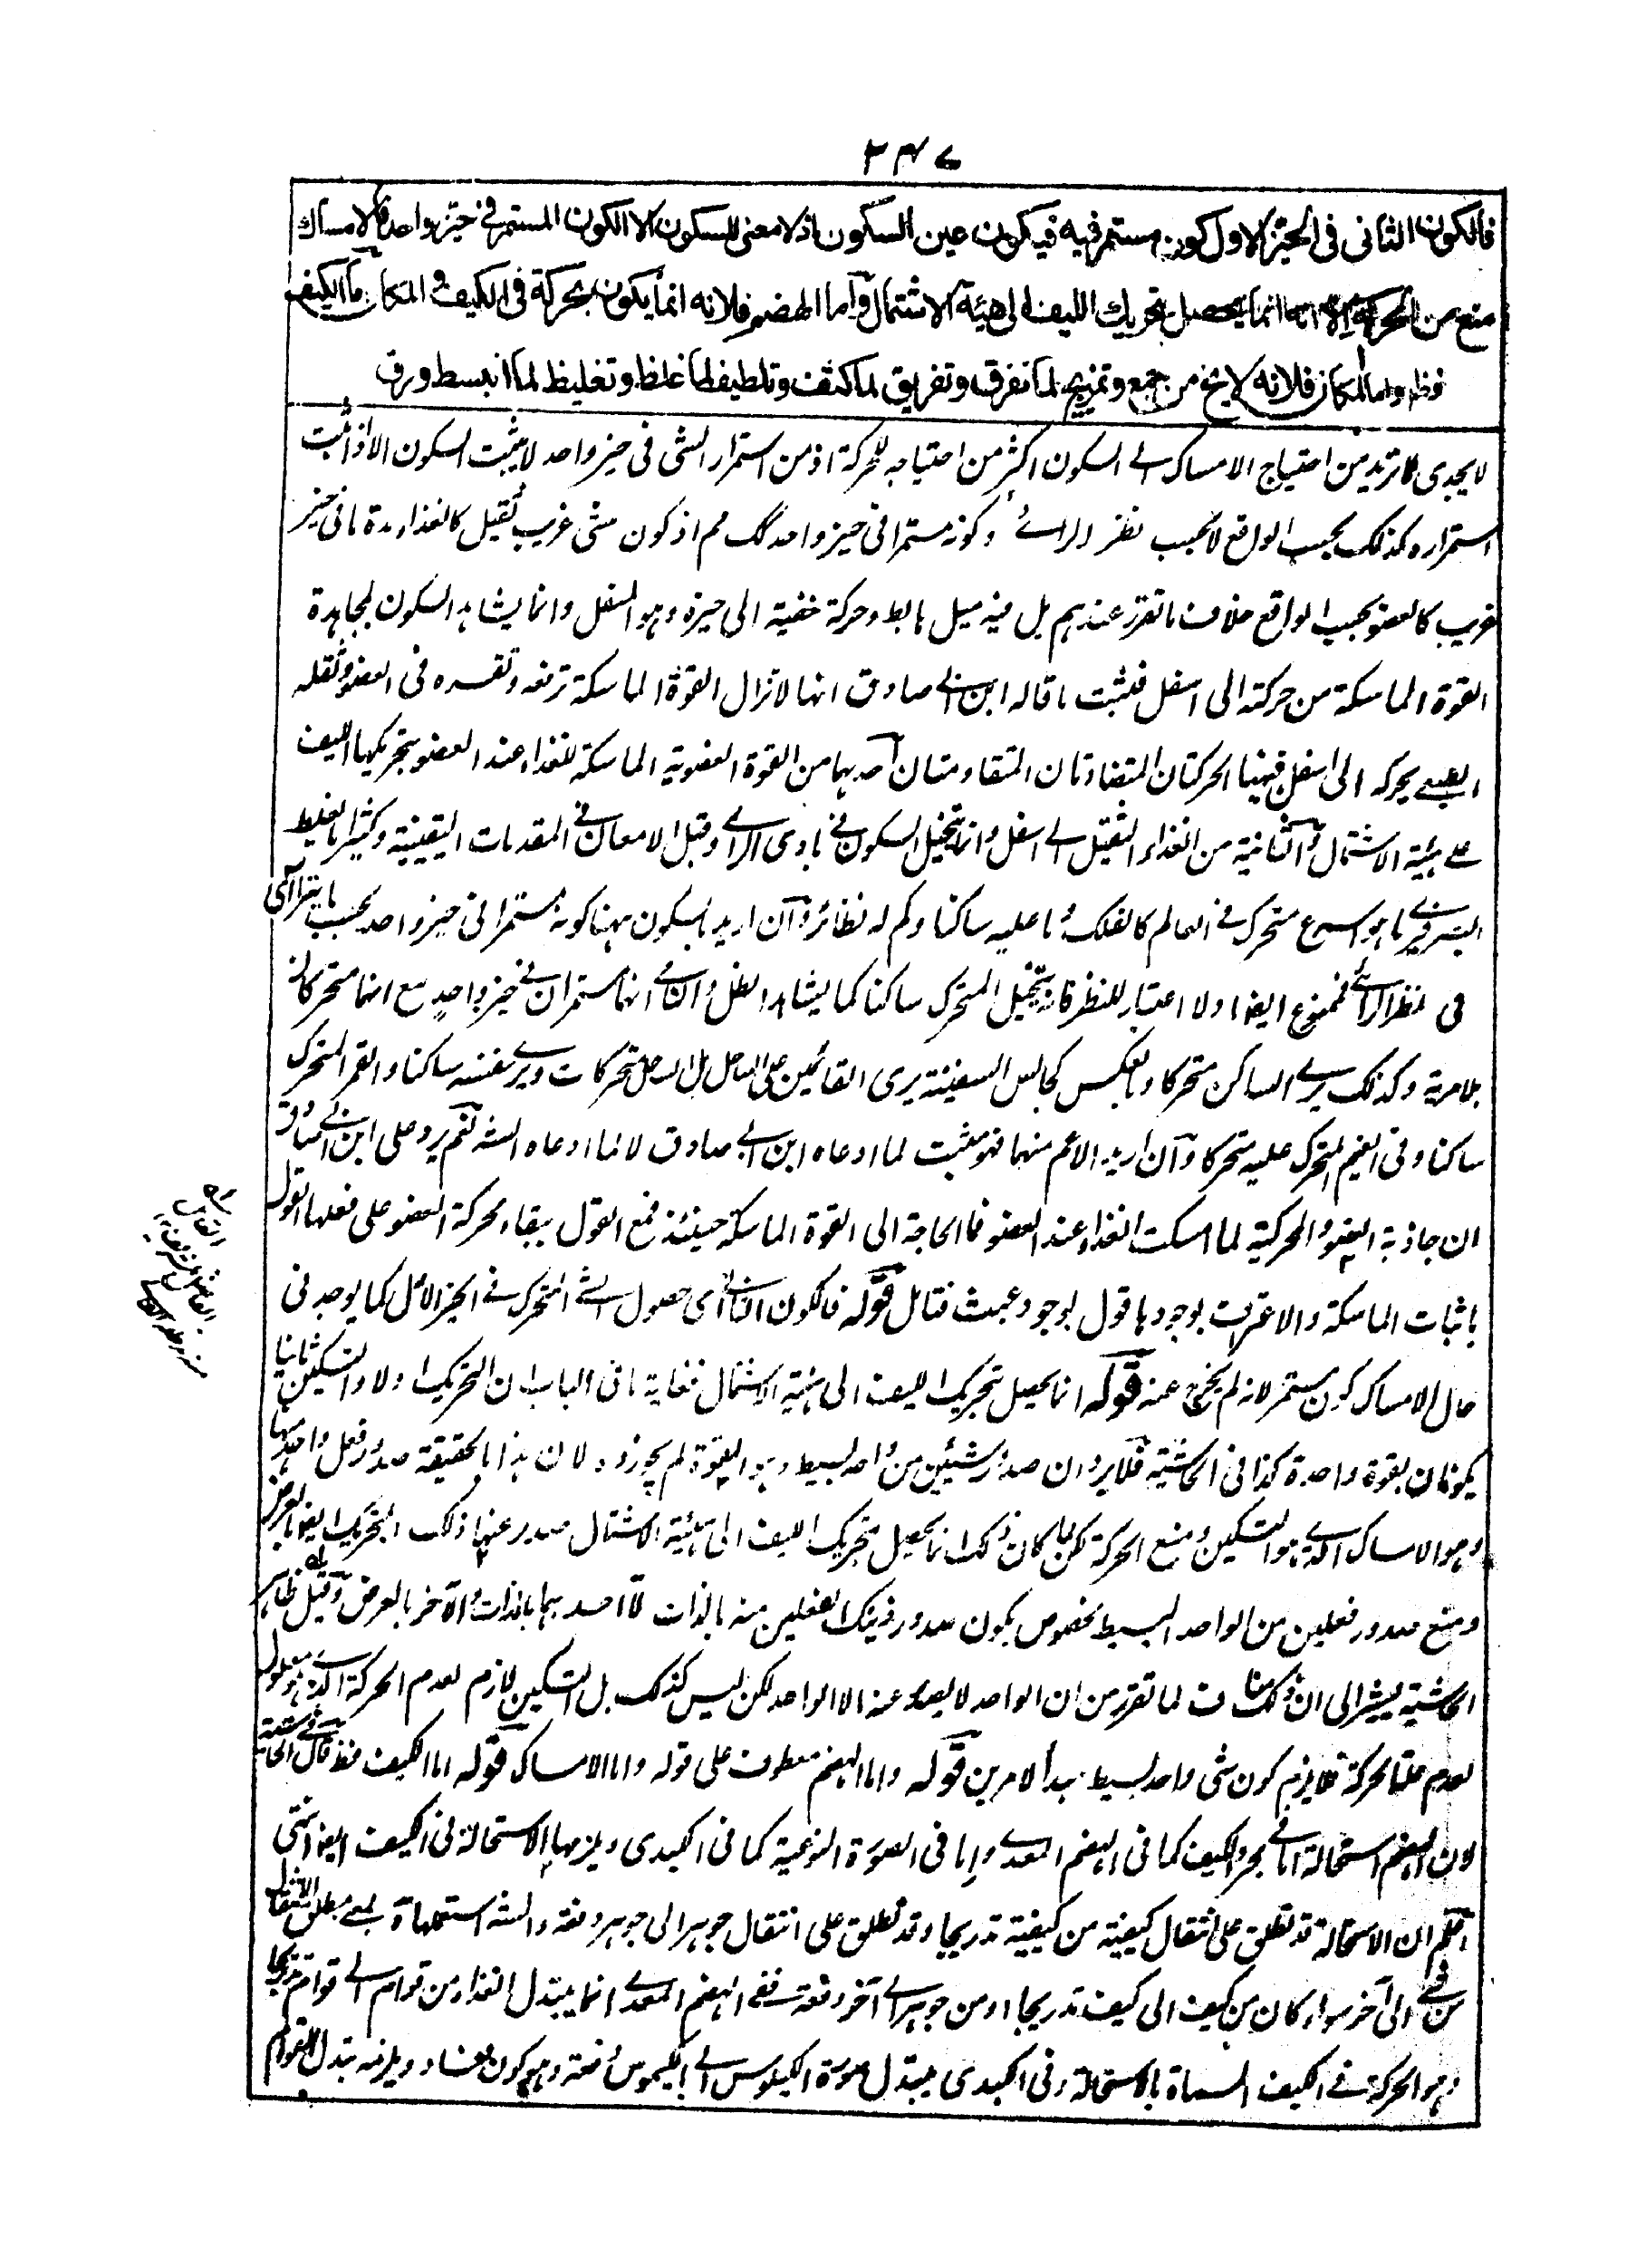 ٣٤٧
فالكون الثانى فى الحيز الاول كون مستمر فيه فيكون عين السكون اذ لا معنى للسكون الا الكون المستمر فى حيز واحد فالامساك
منع من الحركة الا انه انما يحصل بتحريك الليف الى هيئة الاشتمال واما الهضم فلانه انما يكون بحركة فى الكيف و المكان اما الكيف
فظ واما المكان فلانه لا يخ من جمع وتمزيج لما تفرق وتفريق لما كثف وتلطيف لما غلظ وتغليظ لما انبسط ورق
لا يجدى لما تريد من احتياج الامساك الى السكون اكثر من احتياجه للحركة اذ من استمرار الشى فى حيز واحد لا يثبت السكون الا اذا ثبت
استمراره كذلك بحسب الواقع لا بحسب نظر الرائ وكونه مستمرا فى حيز واحد كك مم اذ كون شى غريب ثقيل كالغذاء مدة ما فى حيز
غريب كالعضو بحسب الواقع خلاف ما تقرر عندهم بل فيه ميل هابط وحركة خفية الى حيزه وهو السفل وانما يشاهد السكون لمجاهدة
القوة الماسكة من حركته الى اسفل فثبت ما قاله ابن ابى صادق انها لا تزال القوة الماسكة ترفعه وتقسره فى العضو وثقله
الطبيعى يحركه الى اسفل فههنا الحركتان المتضادتان المتقاومتان احدهما من القوة العضوية الماسكة للغذاء عند العضو بتحريكها الليف
على هيئة الاشتمال والثانية من الغذاء الثقيل الى اسفل وانما يتخيل السكون فى بادى الراى وقبل الامعان فى المقدمات اليقينية وكثيرا ما يغلط
البصر فيرى ما هو اسرع متحرك فى العالم كالفلك وما عليه ساكنا وكم له نظائر وآن اريد بالسكون ههنا كونه مستمرا فى حيز واحد بحسب ما يتراآى
فى نظر الرائى فممنوع ايضا ولا اعتبار للنظر فانه يتخيل المتحرك ساكنا كما يشاهد الظل انهما مستمران فى حيز واحد مع انهما متحركان
بلا مرية وكذلك يرى الساكن متحركا وبالعكس كجالس السفينة يرى القائمين على الساحل بل الساحل متحركات ويرى نفسه ساكنا والقمر المتحرك
ساكنا وفى الغيم المتحرك عليه متحركا وآن اريد الاعم منهما فهو مثبت لما ادعاه ابن ابى صادق لا لما ادعاه الشه نعم يرد على ابن ابى صادق
ان جاذبة العضو المحركية لما امسكت الغذاء عند العضو فما الحاجة الى القوة الماسكة حينئذ فمع القول ببقاء محركة العضو على فعلها القول
باثبات الماسكة والاعتراف بوجودها قول بوجود عبث فتامل قوله فالكون الثانى اى حصول الشى المتحرك فى الحيز الاول كما يوجد فى
حال الامساك كون مستمر لانه لم يخرج عنه قوله انما يحصل بتحريك الليف الى هيئة الاشتمال فغاية ما فى الباب ان التحريك اولا والتسكين ثانيا
يكونان بقوة واحدة كذا فى الحاشية فلا يرد ان صدور شيئين من واحد بسيط وهو القوة لم يجوزوه لان هذا بالحقيقة صدور فعل واحد منها
وهو الامساك الذى هو التسكين ومنع الحركة لكن لما كان ذلك انما يحصل بتحريك الليف الى هيئة الاشتمال صدر عنها ذلك التحريك ايضا بالعرض
ومنع صدور فعلين من الواحد البسيط مخصوص بكون صدور ذينك الفعلين منه بالذات لا احدهما بالذات والآخر بالعرض وقيل ظاهر
الحاشية يشير الى ان ذلك مناف لما تقرر من ان الواحد لا يصدر عنه الا الواحد لكن ليس كذلك بل التسكين لازم لعدم الحركة الذى هو معلول
لعدم علة الحركة فلا يلزم كون شى واحد بسيط مبدأ لامرين قوله واما الهضم معطوف على قوله واما الامساك قوله اما الكيف فظ قال فى الحاشية
لان الهضم استحالة اما فى مجرد الكيف كما فى الهضم المعدى واما فى الصورة النوعية كما فى الكبدى ويلزمها الاستحالة فى الكيف ايضا انتهى
اعلم ان الاستحالة قد تطلق على انتقال كيفية من كيفية تدريجا وقد تطلق على انتقال جوهر الى جوهر دفعة والشه استعملها بمعنى مطلق الانتقال
من شى الى آخر سواء كان من كيف الى كيف تدريجا او من جوهر الى آخر دفعة ففى الهضم المعدى انما يتبدل الغذاء من قوام الى قوام تدريجا
وهو الحركة فى الكيف المسماة بالاستحالة وفى الكبدى يتبدل صورة الكيلوس الى الكيموس دفعة وهو كون وفساد ويلزمه تبدل القوام